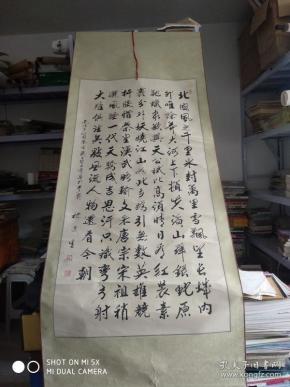 北國風光千里冰封萬里雪飄望長城内
外惟餘莽莽大河上下頓失滔滔山舞銀蛇原
馳蠟象欲與天公試比高須晴日看紅裝素
裹分外妖嬈江山如此多嬌引無數英雄競
折腰惜秦皇漢武略輸文采唐宗宋祖稍
遜風騷一代天驕成吉思汗只識彎弓射
大雕俱往矣數風流人物還看今朝
SHOT ON MI 5X
MI DUAL CAMERA
孔夫子旧书网